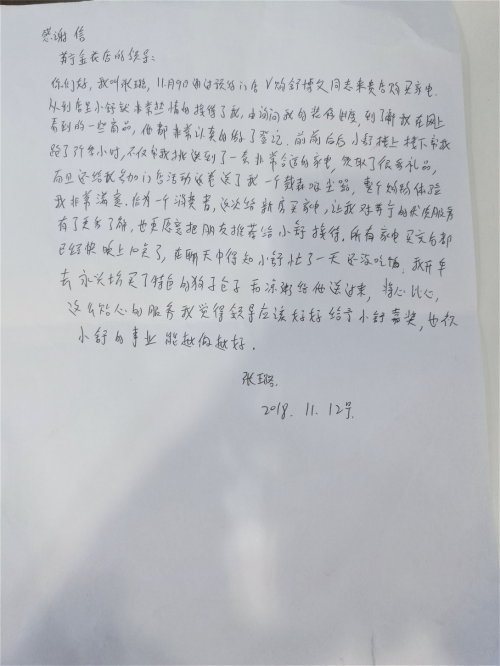 感谢信
苏宁金花店的领导：
你们好，我叫张璐，11月9日通过预约门店V购舒博文同志来贵店购买家电
从到店里小舒就非常热情的接待了我，由询问我的装修进度，到了解我在网上
看到的一些商品，他都非常认真的做了登记，前前后后小舒楼上楼下帮我
跑了3个多小时，不仅帮我挑选到了一套非常合适的家电，领取了很多礼品，
而且还给我参加门店活动返卷送了我一个戴森吸尘器，整个购物体验
我非常满意，作为一个消费者，这次给新房买家电，让我对苏宁的优质服务
有了更多了解，也更愿意把朋友推荐给小舒接待，所有家电买完后都
已经快晚上10点了，在聊天中得知小舒忙了一天还没吃饭，我开车
去永兴坊买了特色的狗子包子和凉粥给他送过来，将心比心，
这么贴心的服务我觉得领导应该好好给予小舒嘉奖，也祝
小舒的事业能越做越好。
张璐
2018.11.12号